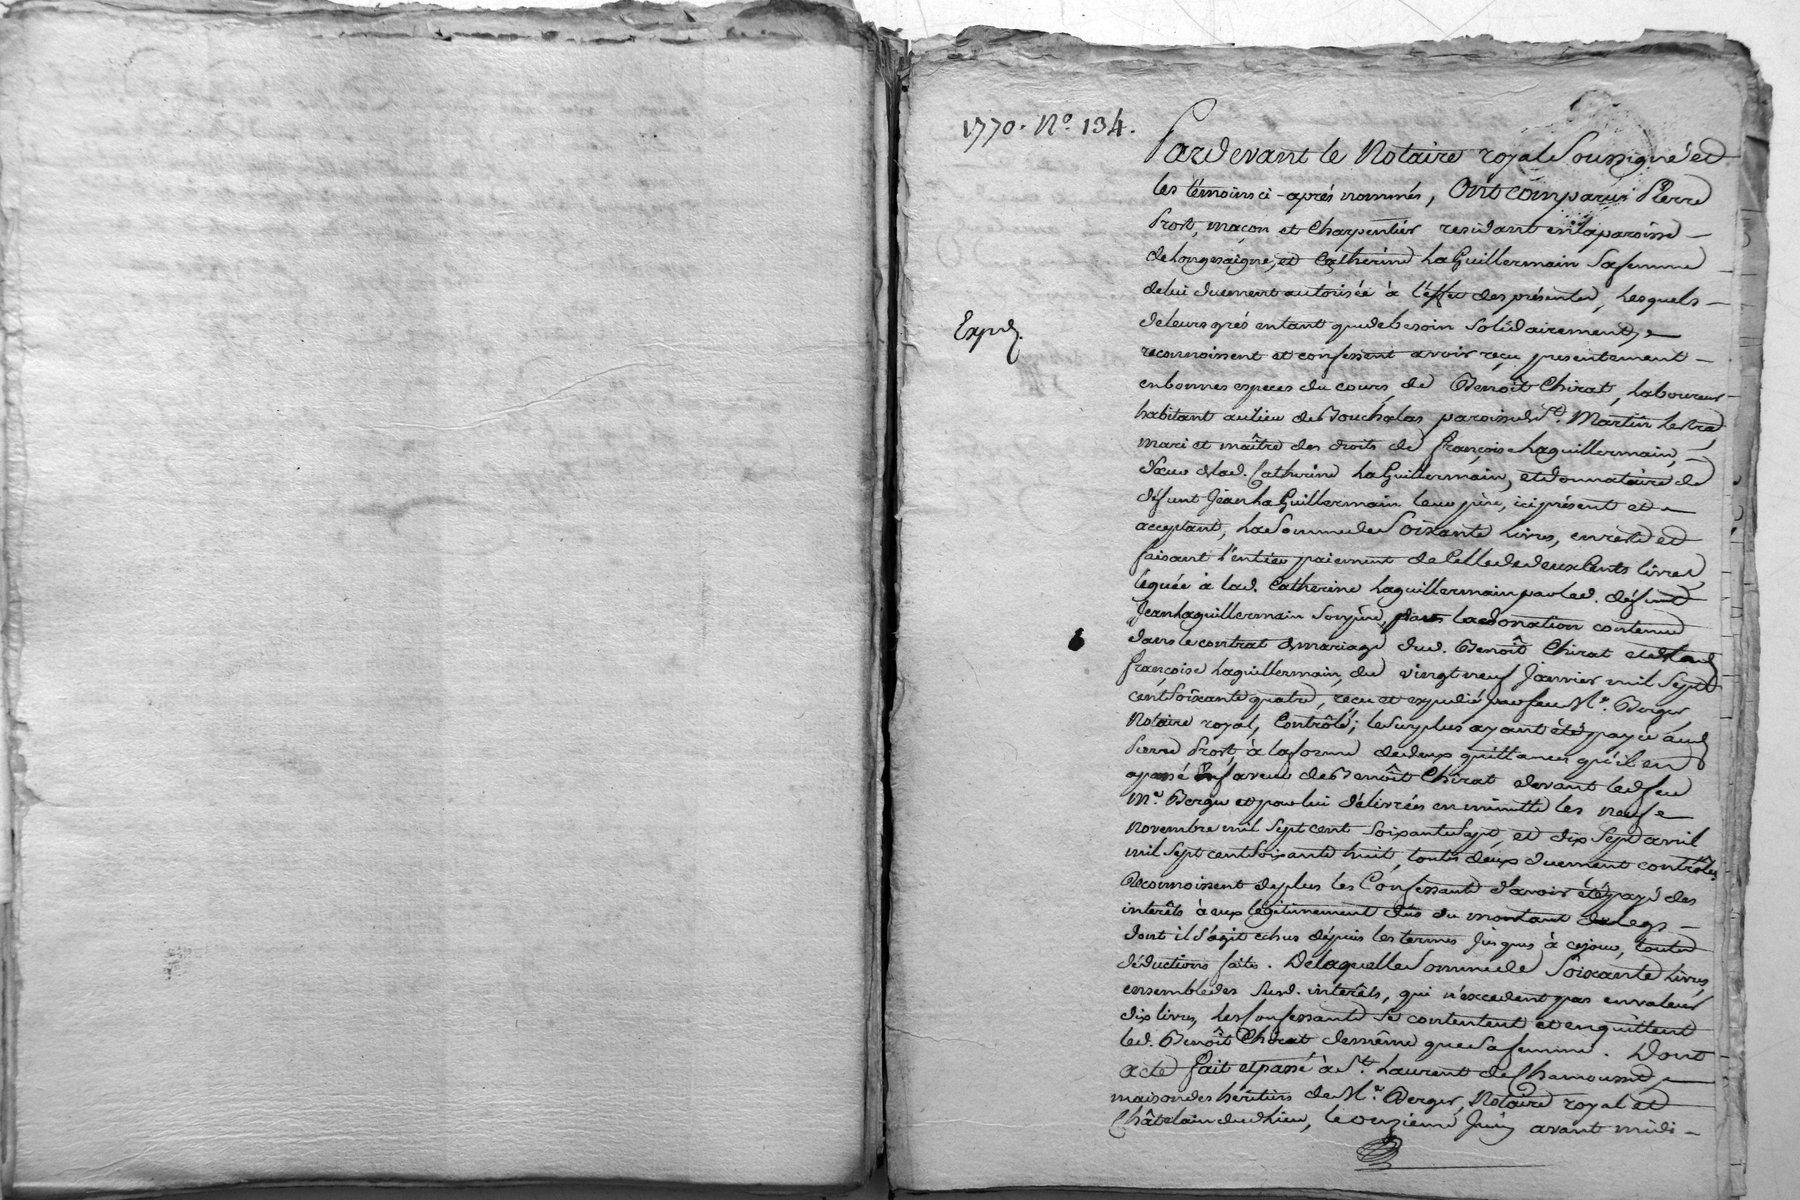 1770. No. 134.
Pardevant le Notaire royal Soussigné et
les témoins ci-aprés nommés, Ont comparus Pierre
Prost, maçon et Charpentier residant en la paroisse
de Longesaigne, et Catherine LaGuillermain Sa femme
de lui duement autorisée à l'effet des présentes, Lesquels
de leurs grés entant que de besoin Solidairement,
Exped.
reconnoissent et confessent avoir reçu presentement
en bonnes especes du cours, de Benoît Chirat, Laboureur
habitant au lieu de Bouchalas paroisse de St. Martin Lestra,
mari et maître des droits de françoise Laguillermain,
Soeur de lad. Catherine LaGuillermain, et donnataire de
défunt Jean LaGuillermain leur pere, ici présent et
acceptant, La Somme de Soixante Livres, en reste et
faisant l'entier paiement de Celle de deux Cents livres
léguée à lad. Catherine Laguillermain par led. défunt
Jean Laguillermain Son pere, dans la donation contenue
dans le contrat de mariage dud. Benoît Chirat et de lad.
françoise Laguillermain, du vingt neuf Janvier mil Sept
cent Soixante quatre, reçu et expedié par feu Me. Berger
Notaire royal, Contrôlé; le Surplus ayant été payé aud.
Pierre Prost, à la forme de deux quittances qu'il en
a passé en faveur de Benoît Chirat devant led. feu
Me. Berger et par lui délivrées en minutte les neuf
Novembre mil Sept cent Soixante Sept, et dix Sept avril
mil Sept cent Soixante huit, toutes deux duement contrôlées
Reconnoissent de plus les Confessants d'avoir été payé des
interêts à eux légitimement dûs du montant du legs
dont il s'agit echus dépuis les termes Jusques à ce jour, toutes
déductions faites. De laquelle Somme de Soixante Livres,
ensemble des Susd. interêts, qui n'excedent pas en valeur
dix livres, Les Confessants Se contentent et en quittent
led. Benoît Chirat de même que Sa femme. Dont
acte fait et passé à St. Laurent de Chamousset
maison des héritiers de Me. Berger, Notaire royal et
Châtelain dud. Lieu, le onzieme Juin avant midi